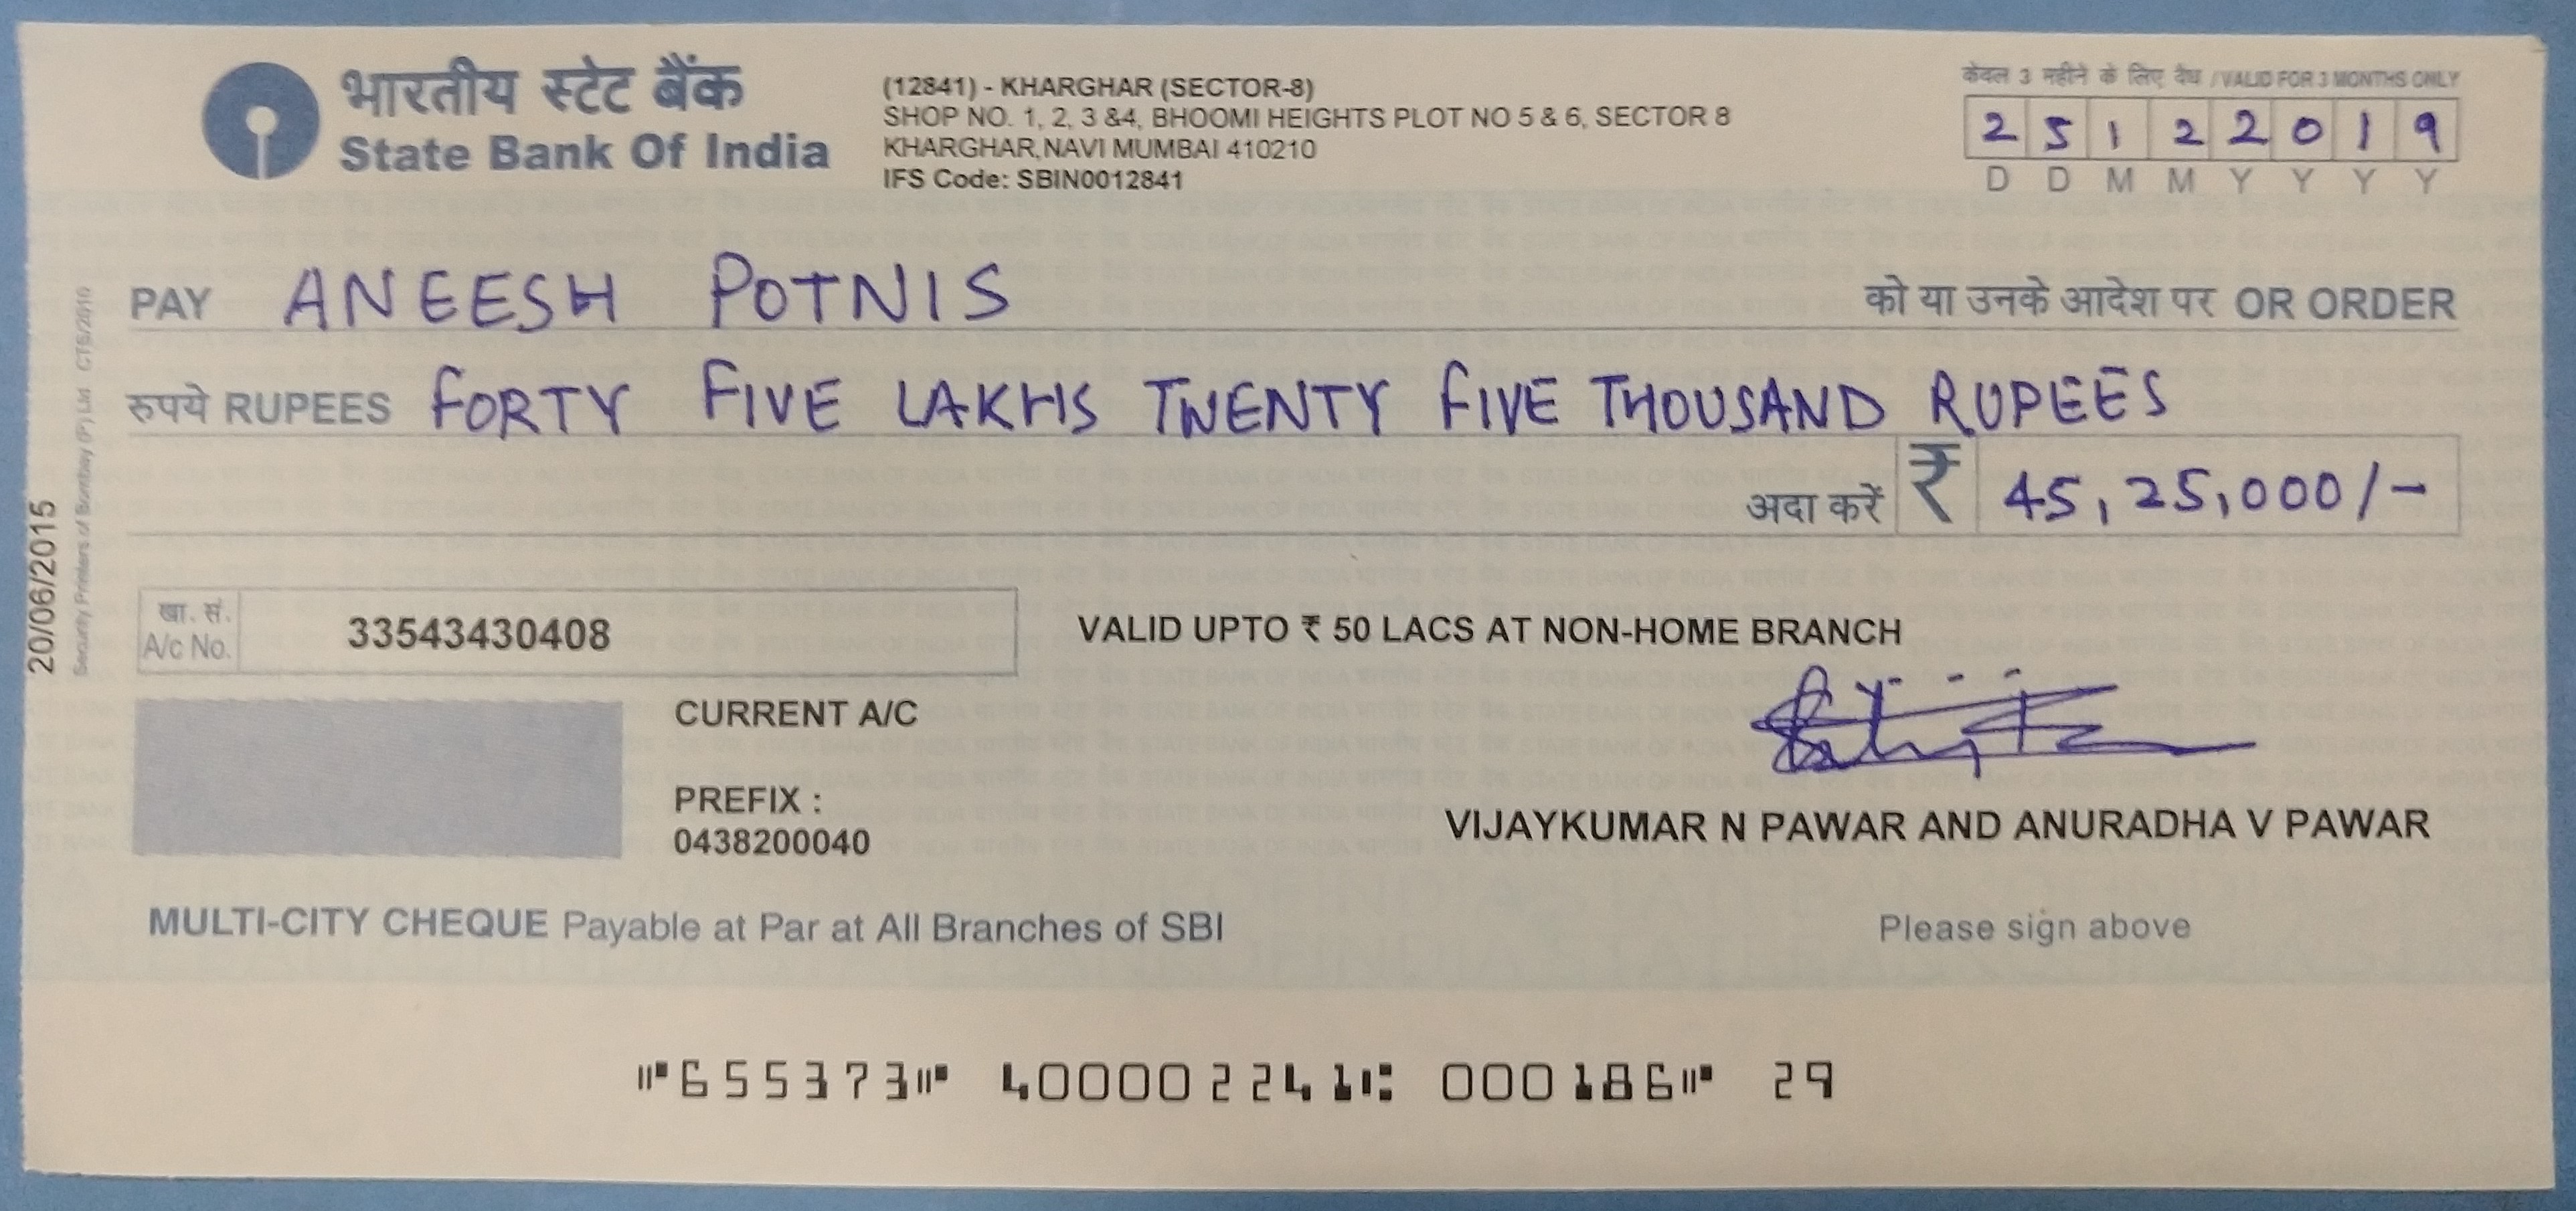 भारतीय स्टेट बैंक
State Bank Of India
(12841) - KHARGHAR (SECTOR-8)
SHOP NO. 1, 2, 3 &4, BHOOMI HEIGHTS PLOT NO 5 & 6, SECTOR 8
KHARGHAR,NAVI MUMBAI 410210
IFS Code: SBIN0012841
केवल 3 महीने के लिए वैध / VALID FOR 3 MONTHS ONLY
2 5 1 2 2 0 1 9
D D M M Y Y Y Y
PAY ANEESH POTNIS को या उनके आदेश पर OR ORDER
रुपये RUPEES FORTY FIVE LAKHS TWENTY FIVE THOUSAND RUPEES
अदा करें ₹ 45,25,000/-
खा. सं.
A/c No. 33543430408
VALID UPTO ₹ 50 LACS AT NON-HOME BRANCH
CURRENT A/C
PREFIX :
0438200040
VIJAYKUMAR N PAWAR AND ANURADHA V PAWAR
MULTI-CITY CHEQUE Payable at Par at All Branches of SBI
Please sign above
⑈655373⑈ 400002241⑆ 000186⑈ 29
20/06/2015
Security Printers of Bombay (P) Ltd. CTS/2010